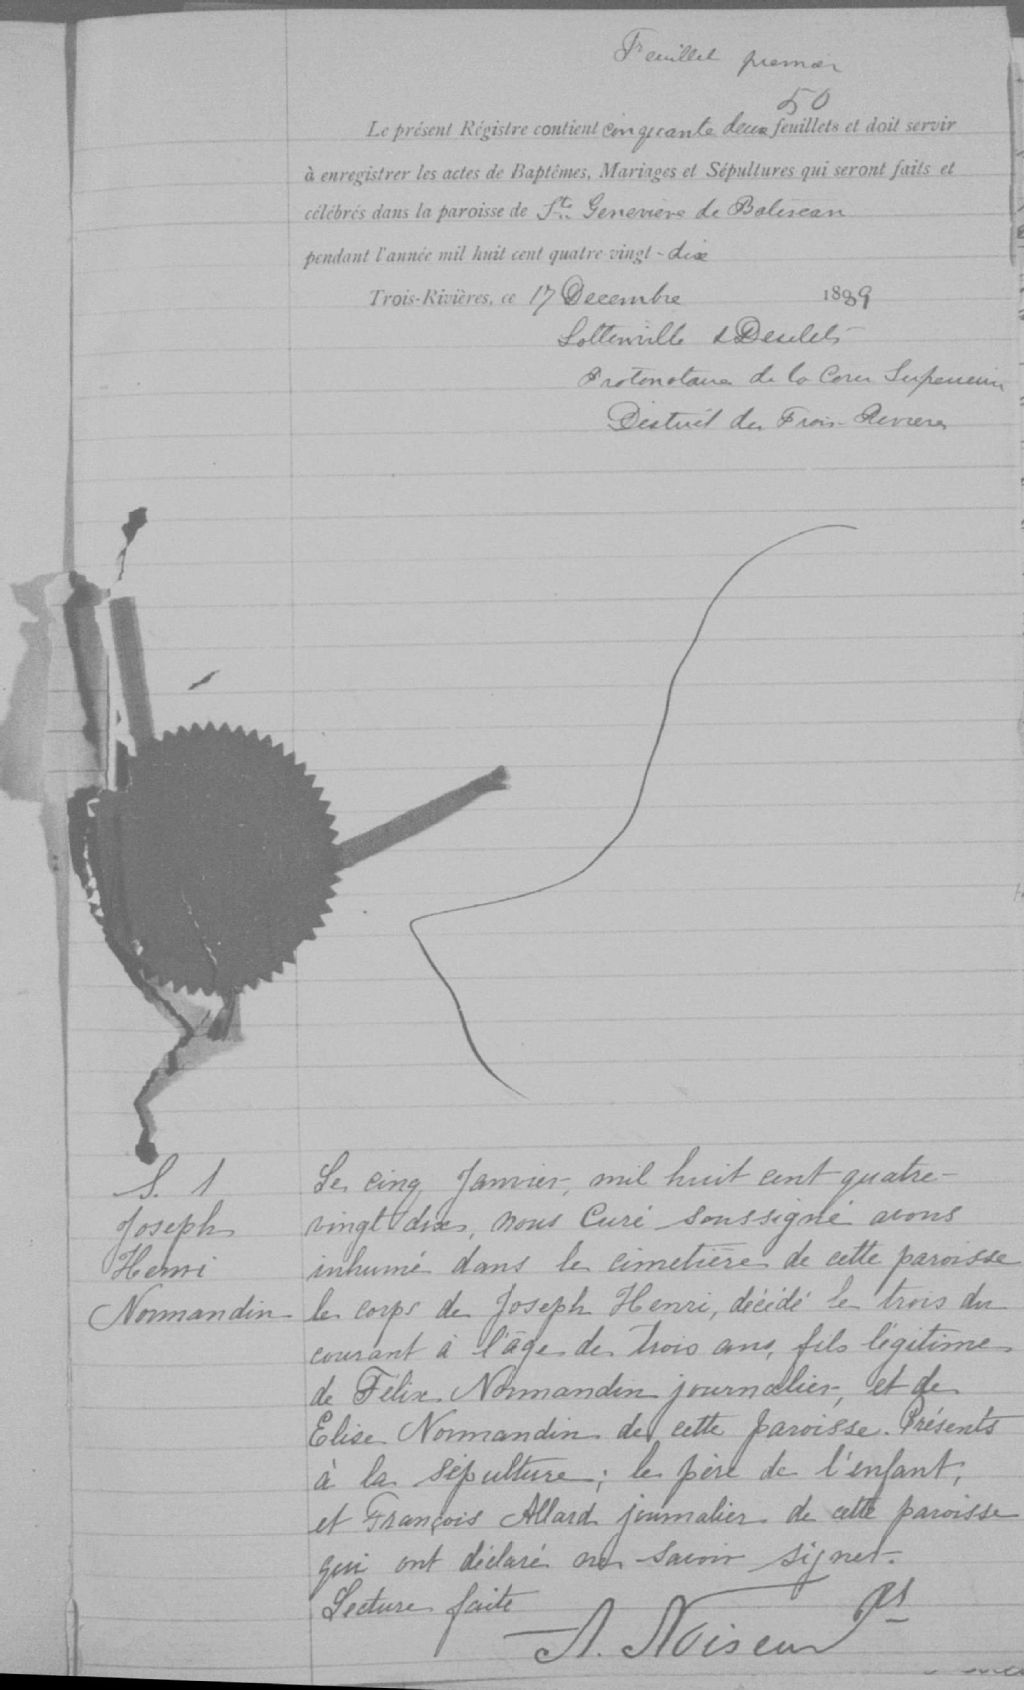 Feuillet premier
50
Le présent Régistre contient cinquante deux feuillets et doit servir
à enregistrer les actes de Baptêmes, Mariages et Sépultures qui seront faits et
célébrés dans la paroisse de Ste Geneviève de Batiscan
pendant l'année mil huit cent quatre-vingt-dix
Trois-Rivières, ce 17 Decembre 1889
Lottinville & Desilets
Protonotaire de la Cour Superieure
District des Trois-Rivieres
S. 1
Joseph
Henri
Normandin
Le cinq Janvier, mil huit cent quatre-
vingt dix, nous Curé soussigné avons
inhumé dans le cimetière de cette paroisse
le corps de Joseph Henri, décédé le trois du
courant à l'âge de trois ans, fils légitime
de Félix Normandin journalier, et de
Elise Normandin de cette paroisse. Présents
à la sépulture; le père de l'enfant,
et François Allard journalier de cette paroisse
qui ont déclaré ne savoir signer.
Lecture faite
A. Noiseux